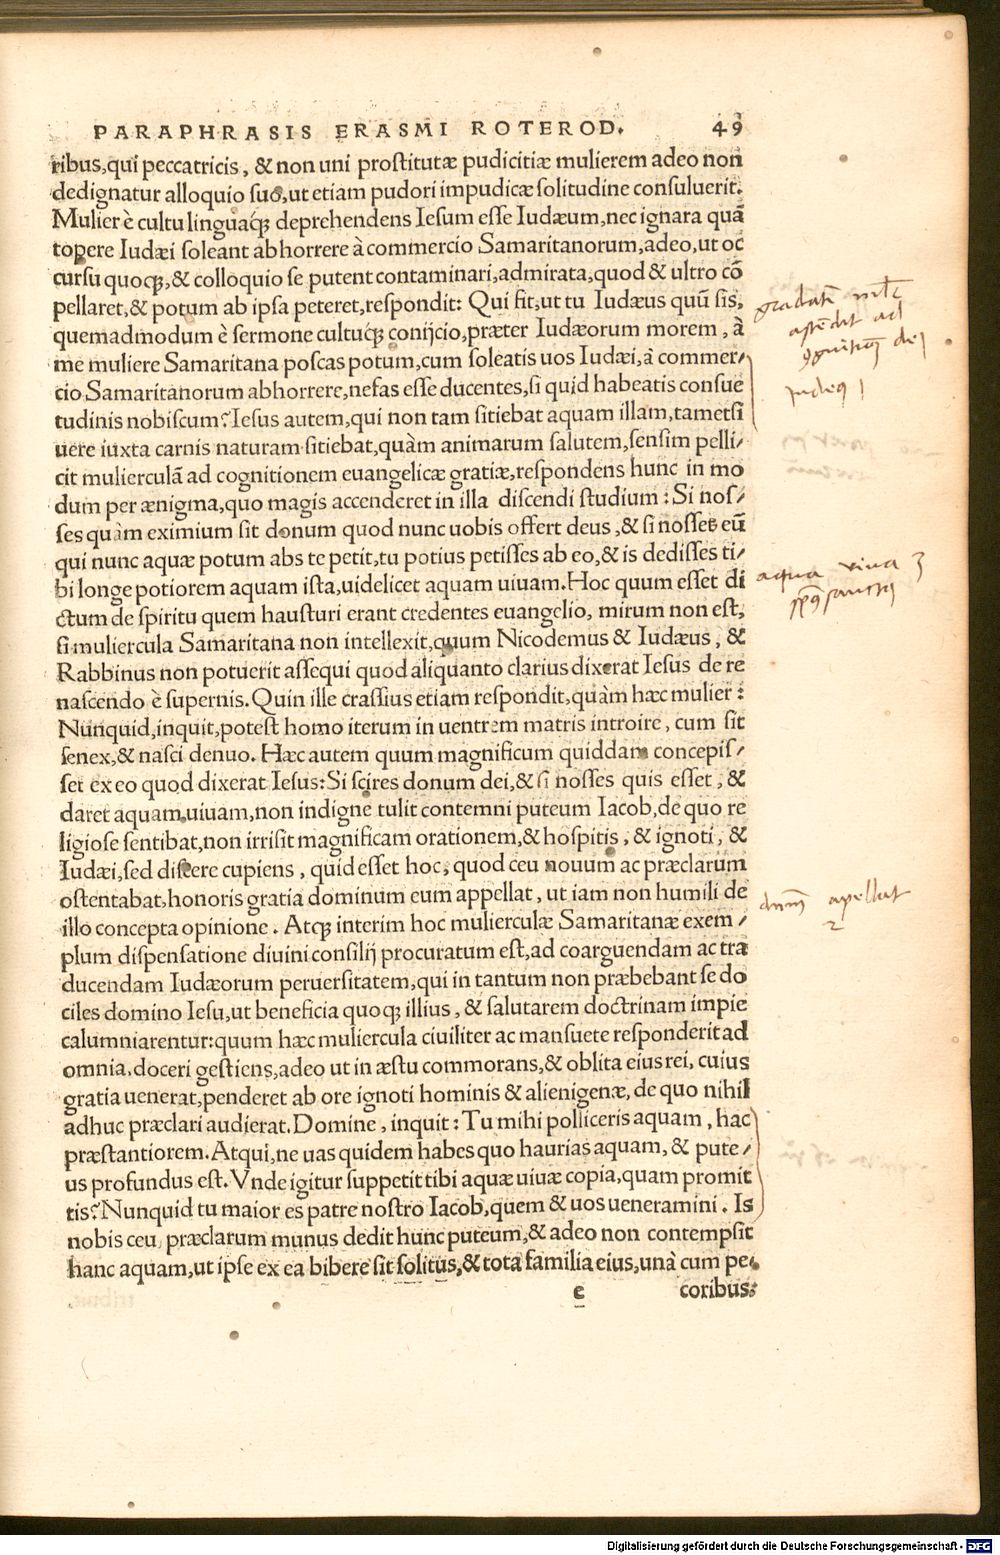 PARAPHRASIS ERASMI ROTEROD. 49
ribus, qui peccatricis, & non uni prostitutæ pudicitiæ mulierem adeo non
dedignatur alloquio suo, ut etiam pudori impudicæ solitudine consuluerit.
Mulier è cultu linguaq́ꝫ deprehendens Iesum esse Iudæum, nec ignara quã
topere Iudæi soleant abhorrere à commercio Samaritanorum, adeo, ut oc
cursu quoqꝫ, & colloquio se putent contaminari, admirata, quod & ultro cõ
pellaret, & potum ab ipsa peteret, respondit: Qui fit, ut tu Iudæus quũ sis,
quemadmodum è sermone cultuq́ꝫ conijcio, præter Iudæorum morem, à
me muliere Samaritana poscas potum, cum soleatis uos Iudæi, à commer/
cio Samaritanorum abhorrere, nefas esse ducentes, si quid habeatis consue
tudinis nobiscum? Iesus autem, qui non tam sitiebat aquam illam, tametsi
uere iuxta carnis naturam sitiebat, quàm animarum salutem, sensim pelli/
cit mulierculã ad cognitionem euangelicæ gratiæ, respondens hunc in mo
dum per ænigma, quo magis accenderet in illa discendi studium: Si nos/
ses quàm eximium sit donum quod nunc uobis offert deus, & si nosses eũ
qui nunc aquæ potum abs te petit, tu potius petisses ab eo, & is dedisses ti/
bi longe potiorem aquam ista, uidelicet aquam uiuam. Hoc quum esset di
ctum de spiritu quem hausturi erant credentes euangelio, mirum non est,
si muliercula Samaritana non intellexit, quum Nicodemus & Iudæus, &
Rabbinus non potuerit assequi quod aliquanto clarius dixerat Iesus de re
nascendo è supernis. Quin ille crassius etiam respondit, quàm hæc mulier:
Nunquid, inquit, potest homo iterum in uentrem matris introire, cum sit
senex, & nasci denuo. Hæc autem quum magnificum quiddam concepis/
set ex eo quod dixerat Iesus: Si scires donum dei, & si nosses quis esset, &
daret aquam uiuam, non indigne tulit contemni puteum Iacob, de quo re
ligiose sentibat, non irrisit magnificam orationem, & hospitis, & ignoti, &
Iudæi, sed discere cupiens, quid esset hoc, quod ceu nouum ac præclarum
ostentabat, honoris gratia dominum eum appellat, ut iam non humili de
illo concepta opinione. Atqꝫ interim hoc mulierculæ Samaritanæ exem/
plum dispensatione diuini consilij procuratum est, ad coarguendam ac tra
ducendam Iudæorum peruersitatem, qui in tantum non præbebant se do
ciles domino Iesu, ut beneficia quoqꝫ illius, & salutarem doctrinam impie
calumniarentur: quum hæc muliercula ciuiliter ac mansuete responderit ad
omnia, doceri gestiens, adeo ut in æstu commorans, & oblita eius rei, cuius
gratia uenerat, penderet ab ore ignoti hominis & alienigenæ, de quo nihil
adhuc præclari audierat. Domine, inquit: Tu mihi polliceris aquam, hac
præstantiorem. Atqui, ne uas quidem habes quo haurias aquam, & pute/
us profundus est. Vnde igitur suppetit tibi aquæ uiuæ copia, quam promit
tis? Nunquid tu maior es patre nostro Iacob, quem & uos ueneramini. Is
nobis ceu præclarum munus dedit hunc puteum, & adeo non contempsit
hanc aquam, ut ipse ex ea bibere sit solitus, & tota familia eius, unà cum pe.
e coribus:
ad
aqua viva
apellat
2
Digitalisierung gefördert durch die Deutsche Forschungsgemeinschaft - DFG